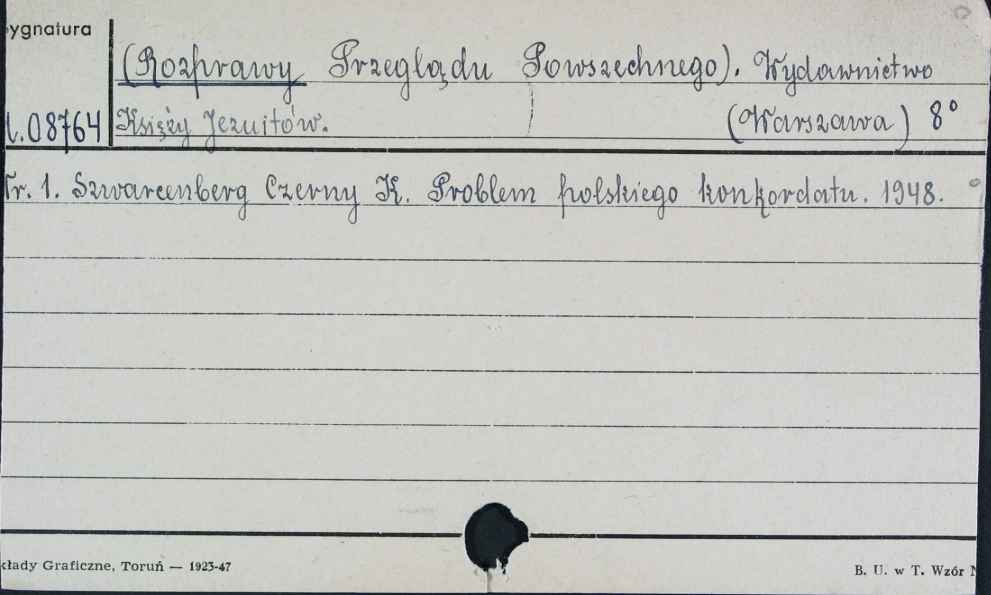 ygnatura
(Rozprawy Przeglądu Powszechnego). Wydawnictwo
08764 Księży Jezuitów. (Warszawa) 8°
Nr. 1. Szwarcenberg Czerny K. Problem polskiego konkordatu. 1948.
kłady Graficzne, Toruń — 1923-47
B. U. w T. Wzór N